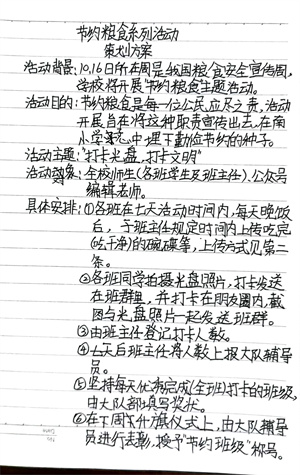 节约粮食系列活动
策划方案
活动背景:10.16日所在周是我国粮食安全宣传周,
学校将开展“节约粮食”主题活动。
活动目的:节约粮食是每一位公民应尽之责,活动
开展旨在将这种职责宣传出去,在南
小学子心中埋下勤俭节约的种子。
活动主题:“打卡光盘,打卡文明”
活动对象:全校师生(各班学生及班主任)、公众号
编辑老师。
具体安排:①各班在七天活动时间内,每天晚饭
后,于班主任规定时间内上传吃完
(吃干净)的碗碟等,上传方式见第二
条。
②各班同学拍摄光盘照片,打卡发送
在班群里,并打卡在朋友圈内,截
图与光盘照片一起发送班群。
③由班主任登记打卡人数。
④七天后班主任将人数上报大队辅导
员。
⑤坚持每天优秀完成(全班)打卡的班级,
由大队部填写奖状。
⑥在下周升旗仪式上,由大队辅导
员进行表彰,授予“节约班级”称号。